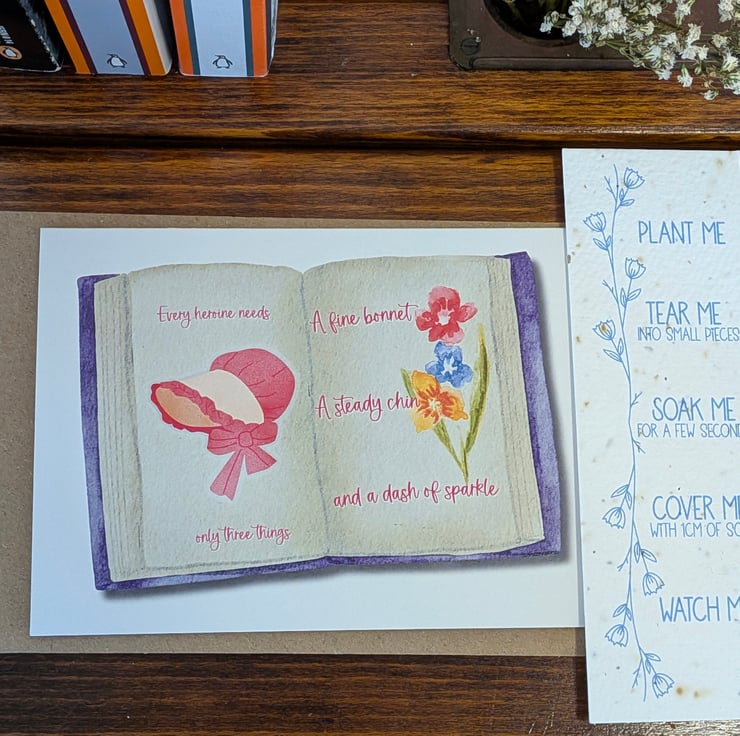 Every heroine needs
only three things
A fine bonnet
A steady chin
and a dash of sparkle
PLANT ME
TEAR ME
INTO SMALL PIECES
SOAK ME
FOR A FEW SECOND
COVER ME
WITH 1CM OF SO
WATCH M